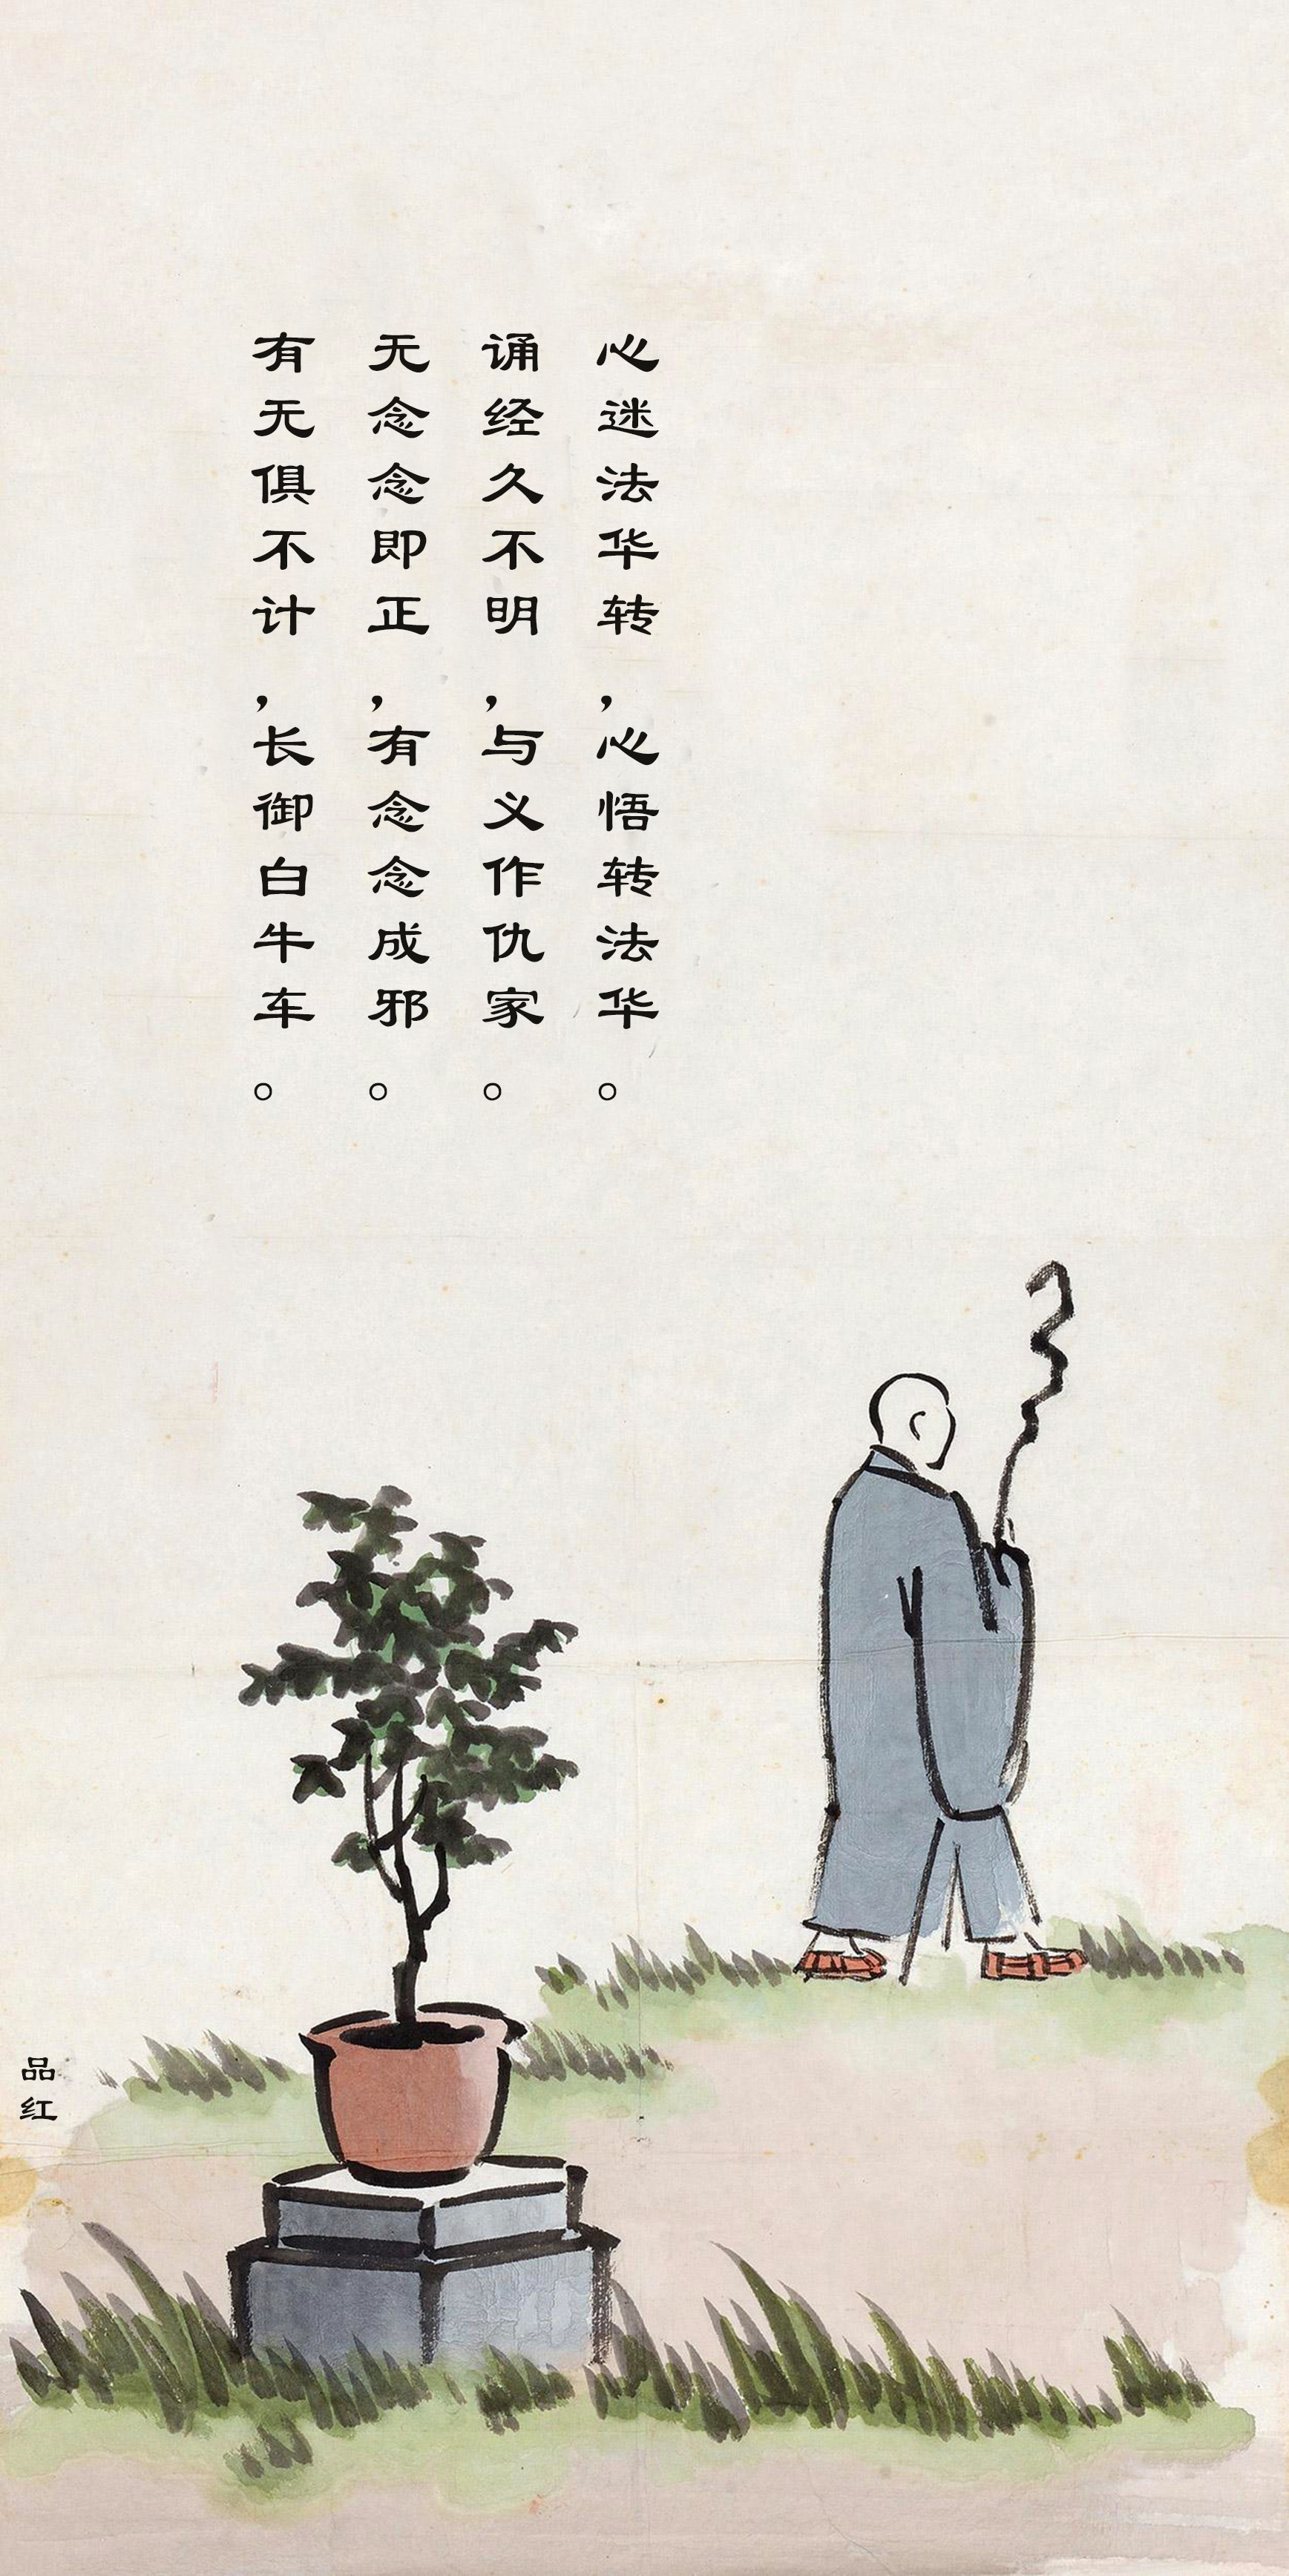 心迷法华转，心悟转法华。
诵经久不明，与义作仇家。
无念念即正，有念念成邪。
有无俱不计，长御白牛车。
品红